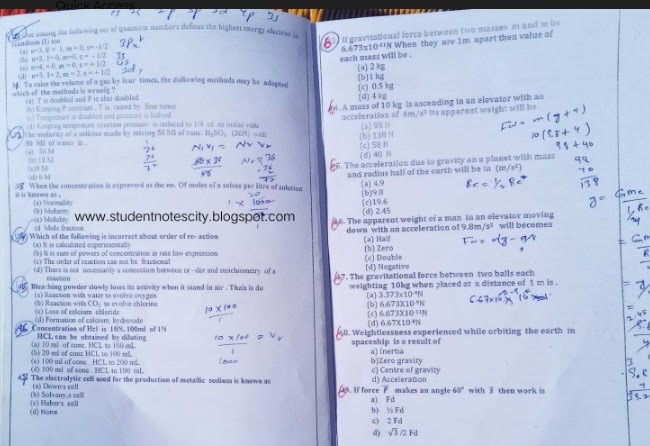 Quick Access
One among the following set of quantum numbers defines the highest energy electron in
scandium (I) am
(b) n=3, l=0, m=0, s= - 1/2 3s
(c) n=4, l=0, m=0, s= + 1/2 4s
(d) n=3, l=2, m=2, s=+1/2
To raise the volume of a gas by four times, the following methods may be adopted
which of the methods is wrong?
(a) T is doubled and P is also doubled
(b) Keeping P constant. T is raised by four times
(c) Temperature is doubled and pressure is halved
(d) Keeping temperature constant pressure is reduced to 1/4 of its initial value
The molarity of a solution made by mixing 50 Ml of conc. H₂SO₄ (36N) with
50 Ml of water is.
(a) 36 M
(b) 18 M
(c) 9 M
(d) 6 M
When the concentration is expressed as the no. Of moles of a solute per litre of solution
it is known as,
(a) Normality
(b) Molarity
(c) Molality
(d) Mole fraction
www.studentnotescity.blogspot.com
Which of the following is incorrect about order of re- action
(a) It is calculated experimentally
(b) It is sum of powers of concentration in rate law expression
(c) The order of reaction can not be fractional
(d) There is not necessarily a connection between or –der and stoichiometry of a
reaction
Bleaching powder slowly loses its activity when it stand in air. This is de
(a) Reaction with water to evolve oxygen
(b) Reaction with CO₂ to evolve chlorine
(c) Loss of calcium chloride
(d) Formation of calcium hydroxide
Concentration of Hcl is 10N, 100ml of 1N
HCL can be obtained by diluting
(a) 10 ml of conc. HCL to 100 mL
(b) 20 ml of conc HCL to 100 mL
(c) 100 ml of conc. HCL to 200 mL
(d) 100 ml of conc. HCL to 100 mL
10 x 100
1
10 x 100 = V₂
1
1000
The electrolytic cell used for the production of metallic sodium is known as
(a) Downs cell
(b) Solvay,s cell
(c) Habers cell
(d) None
If gravitational force between two masses m and m be
6.673x10⁻¹¹N When they are 1m apart then value of
each mass will be.
(a) 2 kg
(b)1 kg
(c) 0.5 kg
(d) 4 kg
A mass of 10 kg is ascending in an elevator with an
acceleration of 4m/s² its apparent weight will be
(a) 98 N
(b) 138 N
(c) 58 N
(d) 40 N
10(9.8+4)
98+40
98
40
138
65. The acceleration due to gravity on a planet with mass
and radius half of the earth will be in (m/s²)
(a) 4.9
(b)9.8
(c)19.6
(d) 2.45
66. The apparent weight of a man in an elevator moving
down with an acceleration of 9.8m/s² will becomes
(a) Half
(b) Zero
(c) Double
(d) Negative
67. The gravitational force between two balls each
weighting 10kg when placed at a distance of 1 m is.
(a) 3.373x10⁻⁹N
(b) 6.673X10⁻⁹N
(c) 6.673X10⁻¹¹N
(d) 6.67X10⁻⁹N
68. Weightlessness experienced while orbiting the earth in
spaceship is a result of
a) Inertia
b)Zero gravity
c) Centre of gravity
d) Acceleration
69. If force F makes an angle 60° with S then work is
a) Fd
b) ½ Fd
c) 2 Fd
d) √3/2 Fd